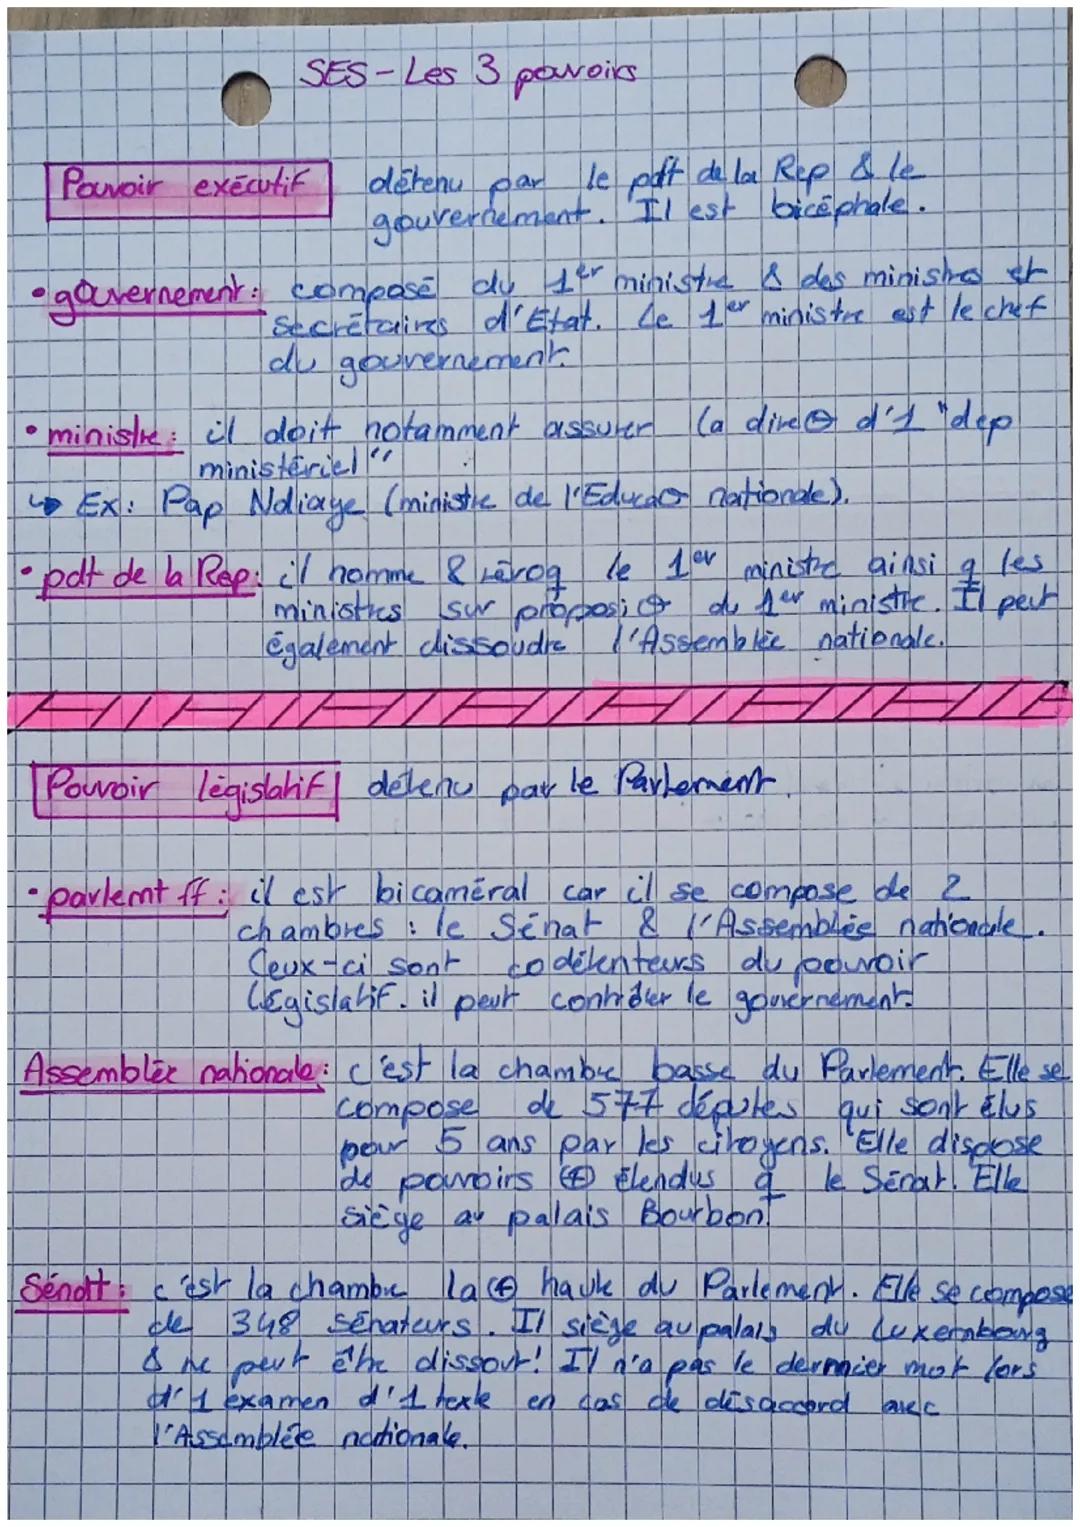 SES - Les 3 pouvoirs
Pouvoir exécutif détenu par le pdt de la Rep & le
gouvernement. Il est bicéphale.
• gouvernement : composé du 1er ministre & des ministres et
secrétaires d'Etat. Le 1er ministre est le chef
du gouvernement.
• ministre : il doit notamment assurer la dire⊖ d'1 "dep
ministériel"
↳ Ex : Pap Ndiaye (ministre de l'Educa⊖ nationale).
• pdt de la Rep : il nomme & révoq le 1er ministre ainsi q les
ministres sur proposi⊖ du 1er ministre. Il peut
également dissoudre l'Assemblée nationale.
Pouvoir législatif détenu par le Parlement.
• parlemt ff : il est bicaméral car il se compose de 2
chambres : le Sénat & l'Assemblée nationale.
Ceux-ci sont codétenteurs du pouvoir
législatif. il peut contrôler le gouvernement.
Assemblée nationale : c'est la chambre basse du Parlement. Elle se
compose de 577 députés qui sont élus
pour 5 ans par les citoyens. Elle dispose
de pouvoirs ⊕ étendus q le Sénat. Elle
siège au palais Bourbon.
Sénat : c'est la chambre la ⊕ haute du Parlement. Elle se compose
de 348 sénateurs. Il siège au palais du Luxembourg
& ne peut être dissout! Il n'a pas le dernier mot lors
d'1 examen d'1 texte en cas de désaccord avec
l'Assemblée nationale.